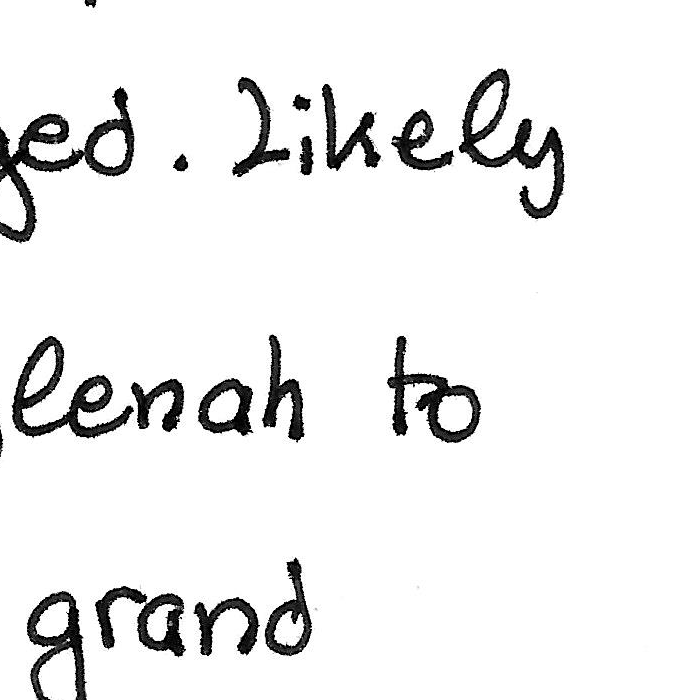 ged. Likely
lenah to
grand